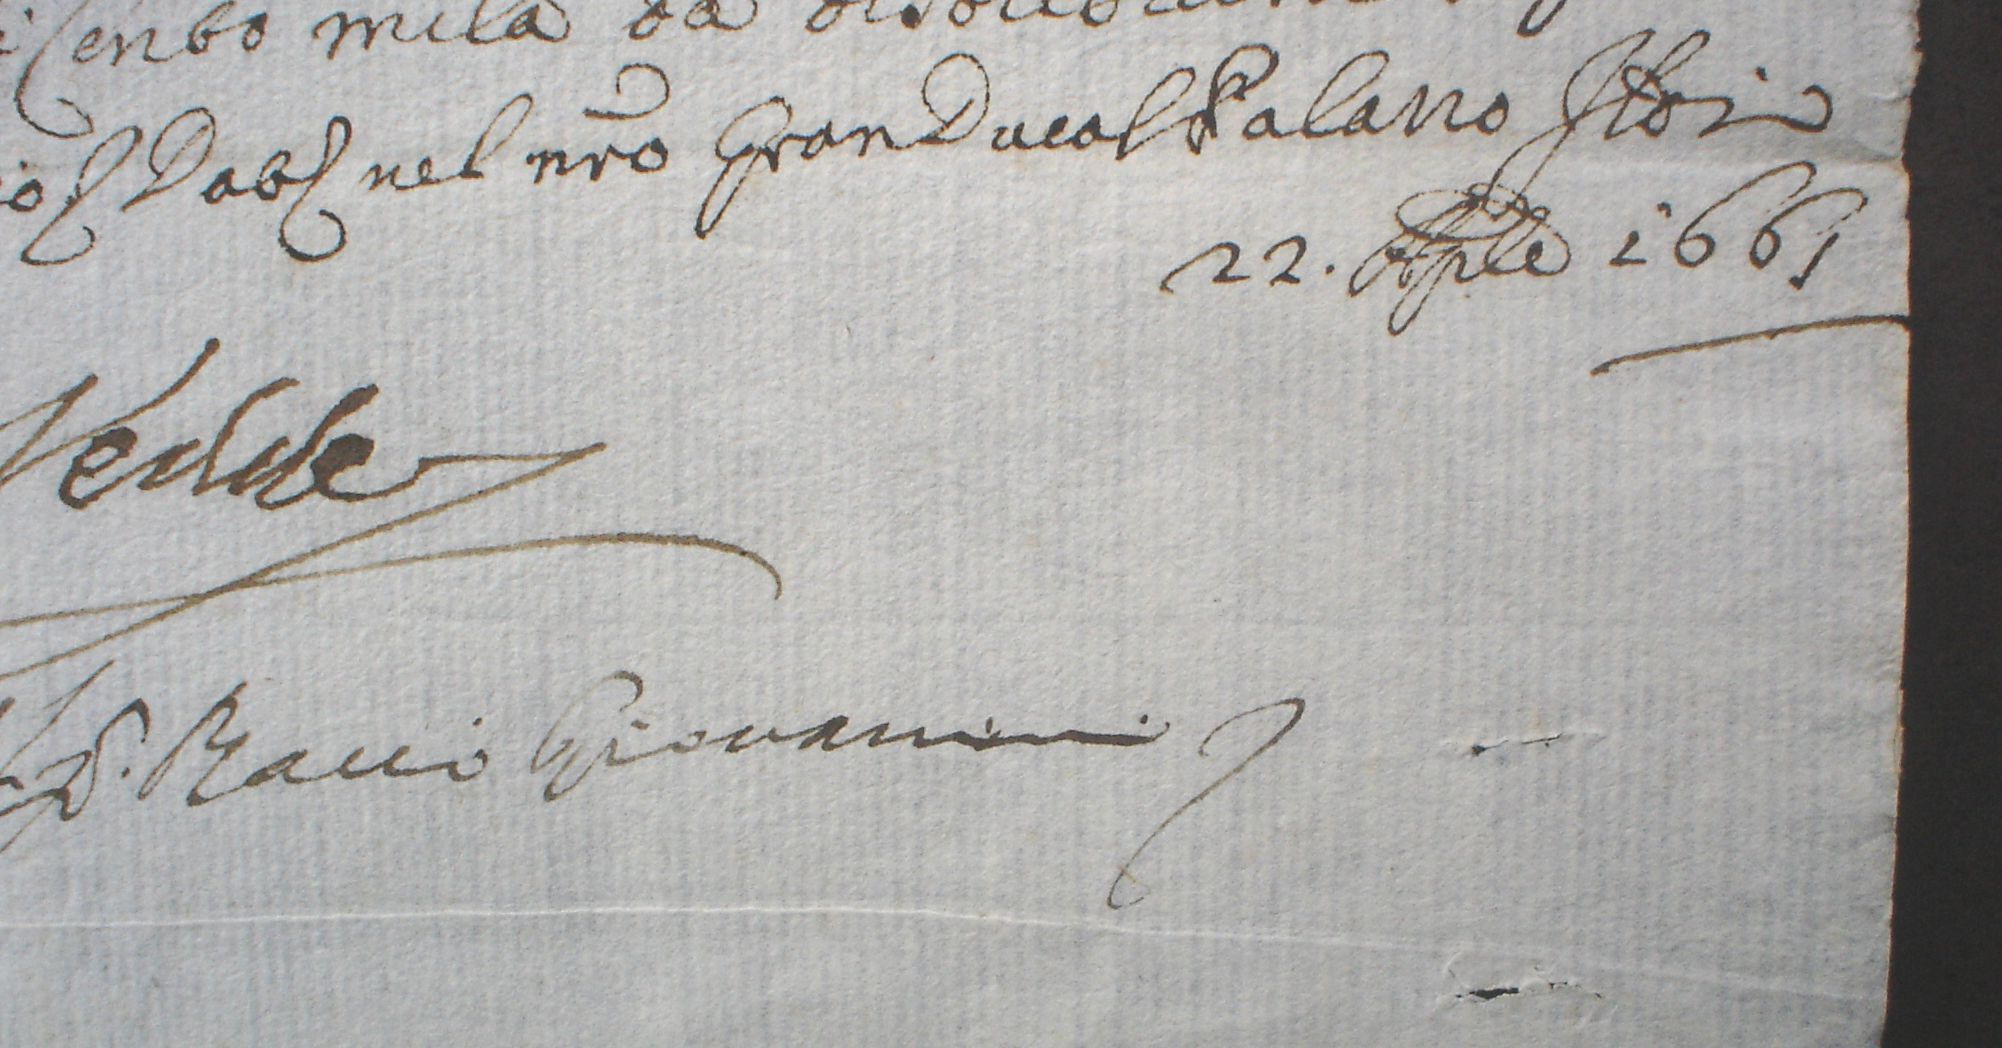 cento mila da
Dat nel nro Gran Ducal Palazzo
22. Aple 1661
Vedde
Baccio Giovannini